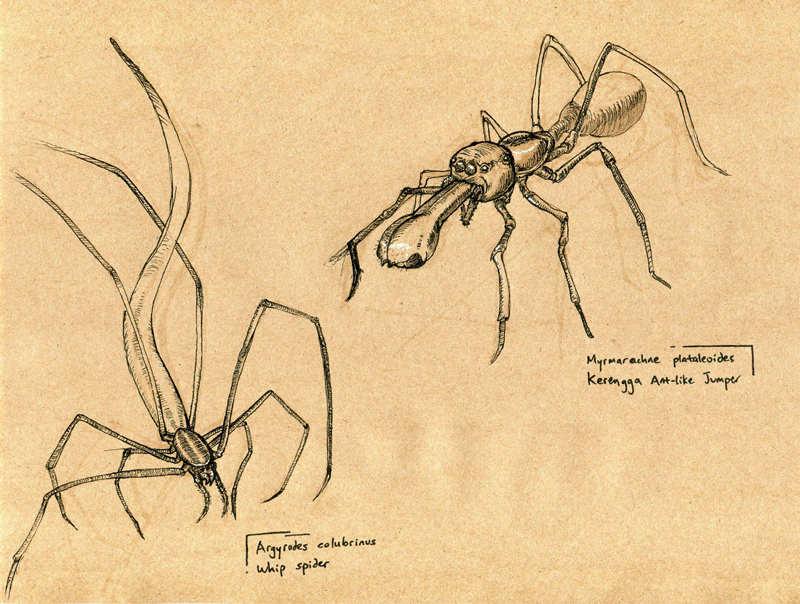 Myrmarachne plataleoides
Kerengga Ant-like Jumper
Argyrodes colubrinus
Whip spider